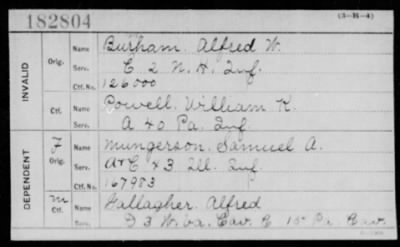 182804
(3-H-4)
INVALID
Orig.
Name Burham. Alfred W.
Serv. E 2 N. H. Inf.
Ctf. No. 126000
Ctf.
Name Powell. William K.
Serv. A 40 Pa. Inf
DEPENDENT
F
Orig.
Name Mungerson, Samuel A.
Serv. A+E 43 Ill. Inf.
Ctf. No. 167983
m
Ctf.
Name Gallagher. Alfred
Serv. D 3 W. Va. Cav. C 15 Pa. Cav.